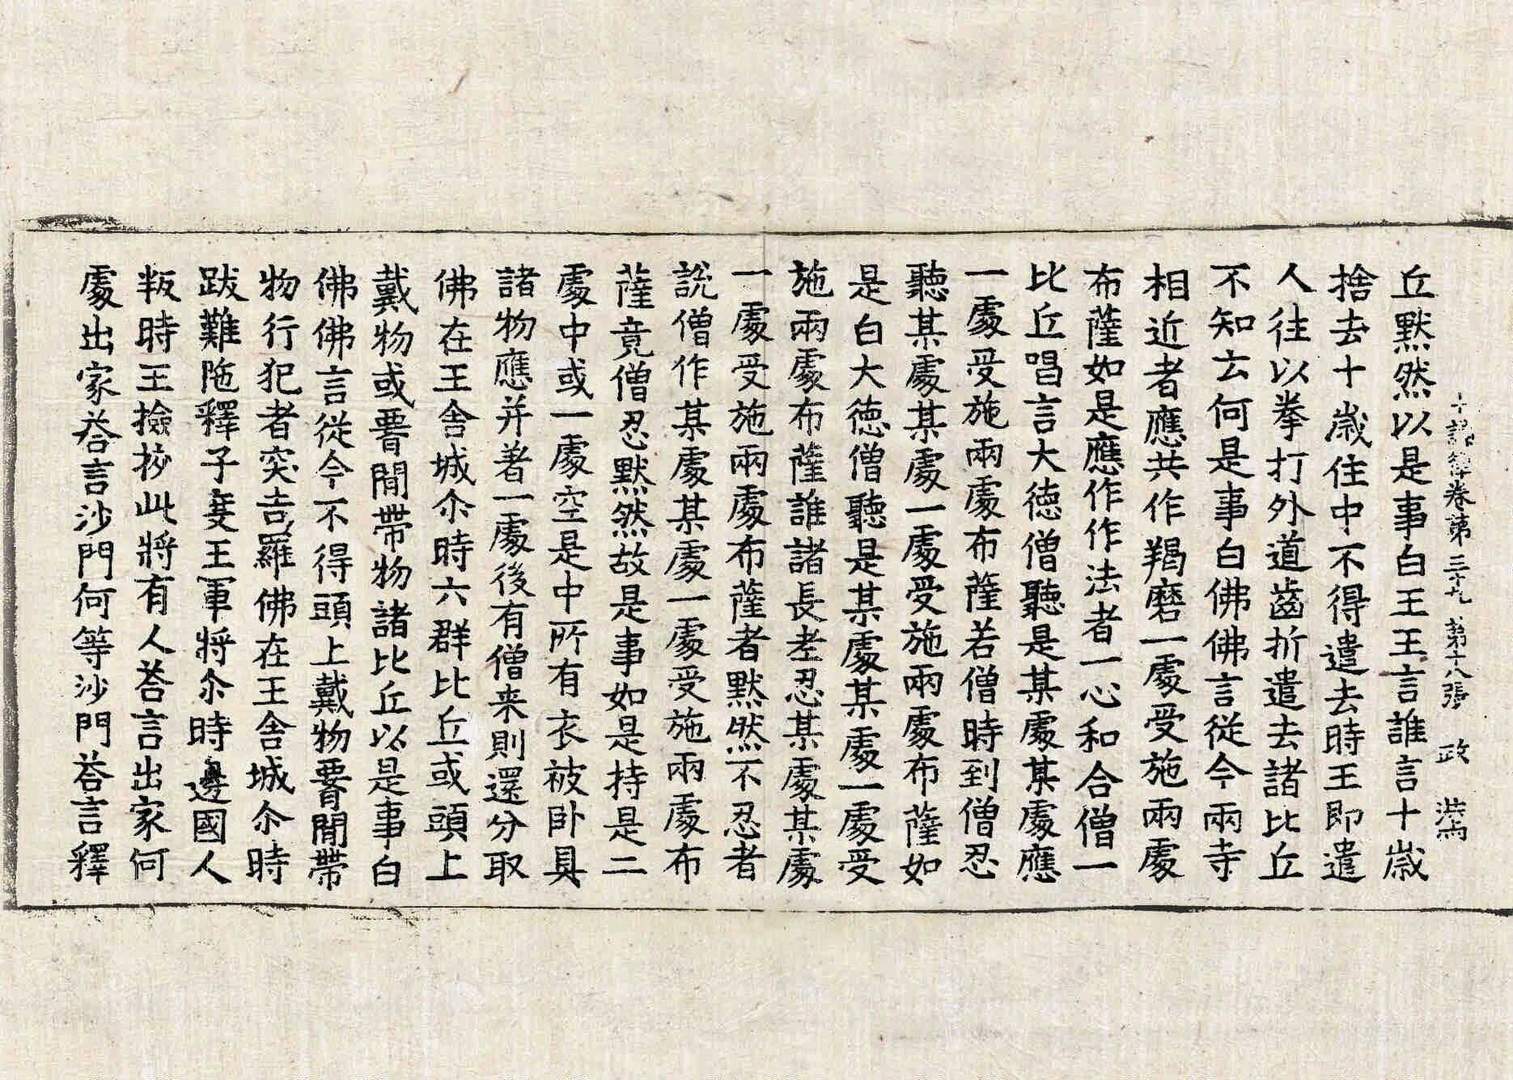 十誦律卷第三十九 第十八張 政
丘默然以是事白王王言誰言十歲
捨去十歲住中不得遣去時王即遣
人往以拳打外道齒折遣去諸比丘
不知云何是事白佛佛言從今兩寺
相近者應共作羯磨一處受施兩處
布薩如是應作作法者一心和合僧一
比丘唱言大徳僧聽是某處某處應
一處受施兩處布薩若僧時到僧忍
聽某處某處一處受施兩處布薩如
是白大徳僧聽是某處某處一處受
施兩處布薩誰諸長老忍某處某處
一處受施兩處布薩者默然不忍者
說僧作某處某處一處受施兩處布
薩竟僧忍默然故是事如是持是二
處中或一處空是中所有衣被卧具
諸物應并著一處後有僧来則還分取
佛在王舍城尒時六群比丘或頭上
戴物或腰間帶物諸比丘以是事白
佛佛言從今不得頭上戴物腰間帶
物行犯者突吉羅佛在王舍城尒時
跋難陁釋子度王軍將尒時邊國人
叛時王撿挍此將有人荅言出家何
處出家荅言沙門何等沙門荅言釋